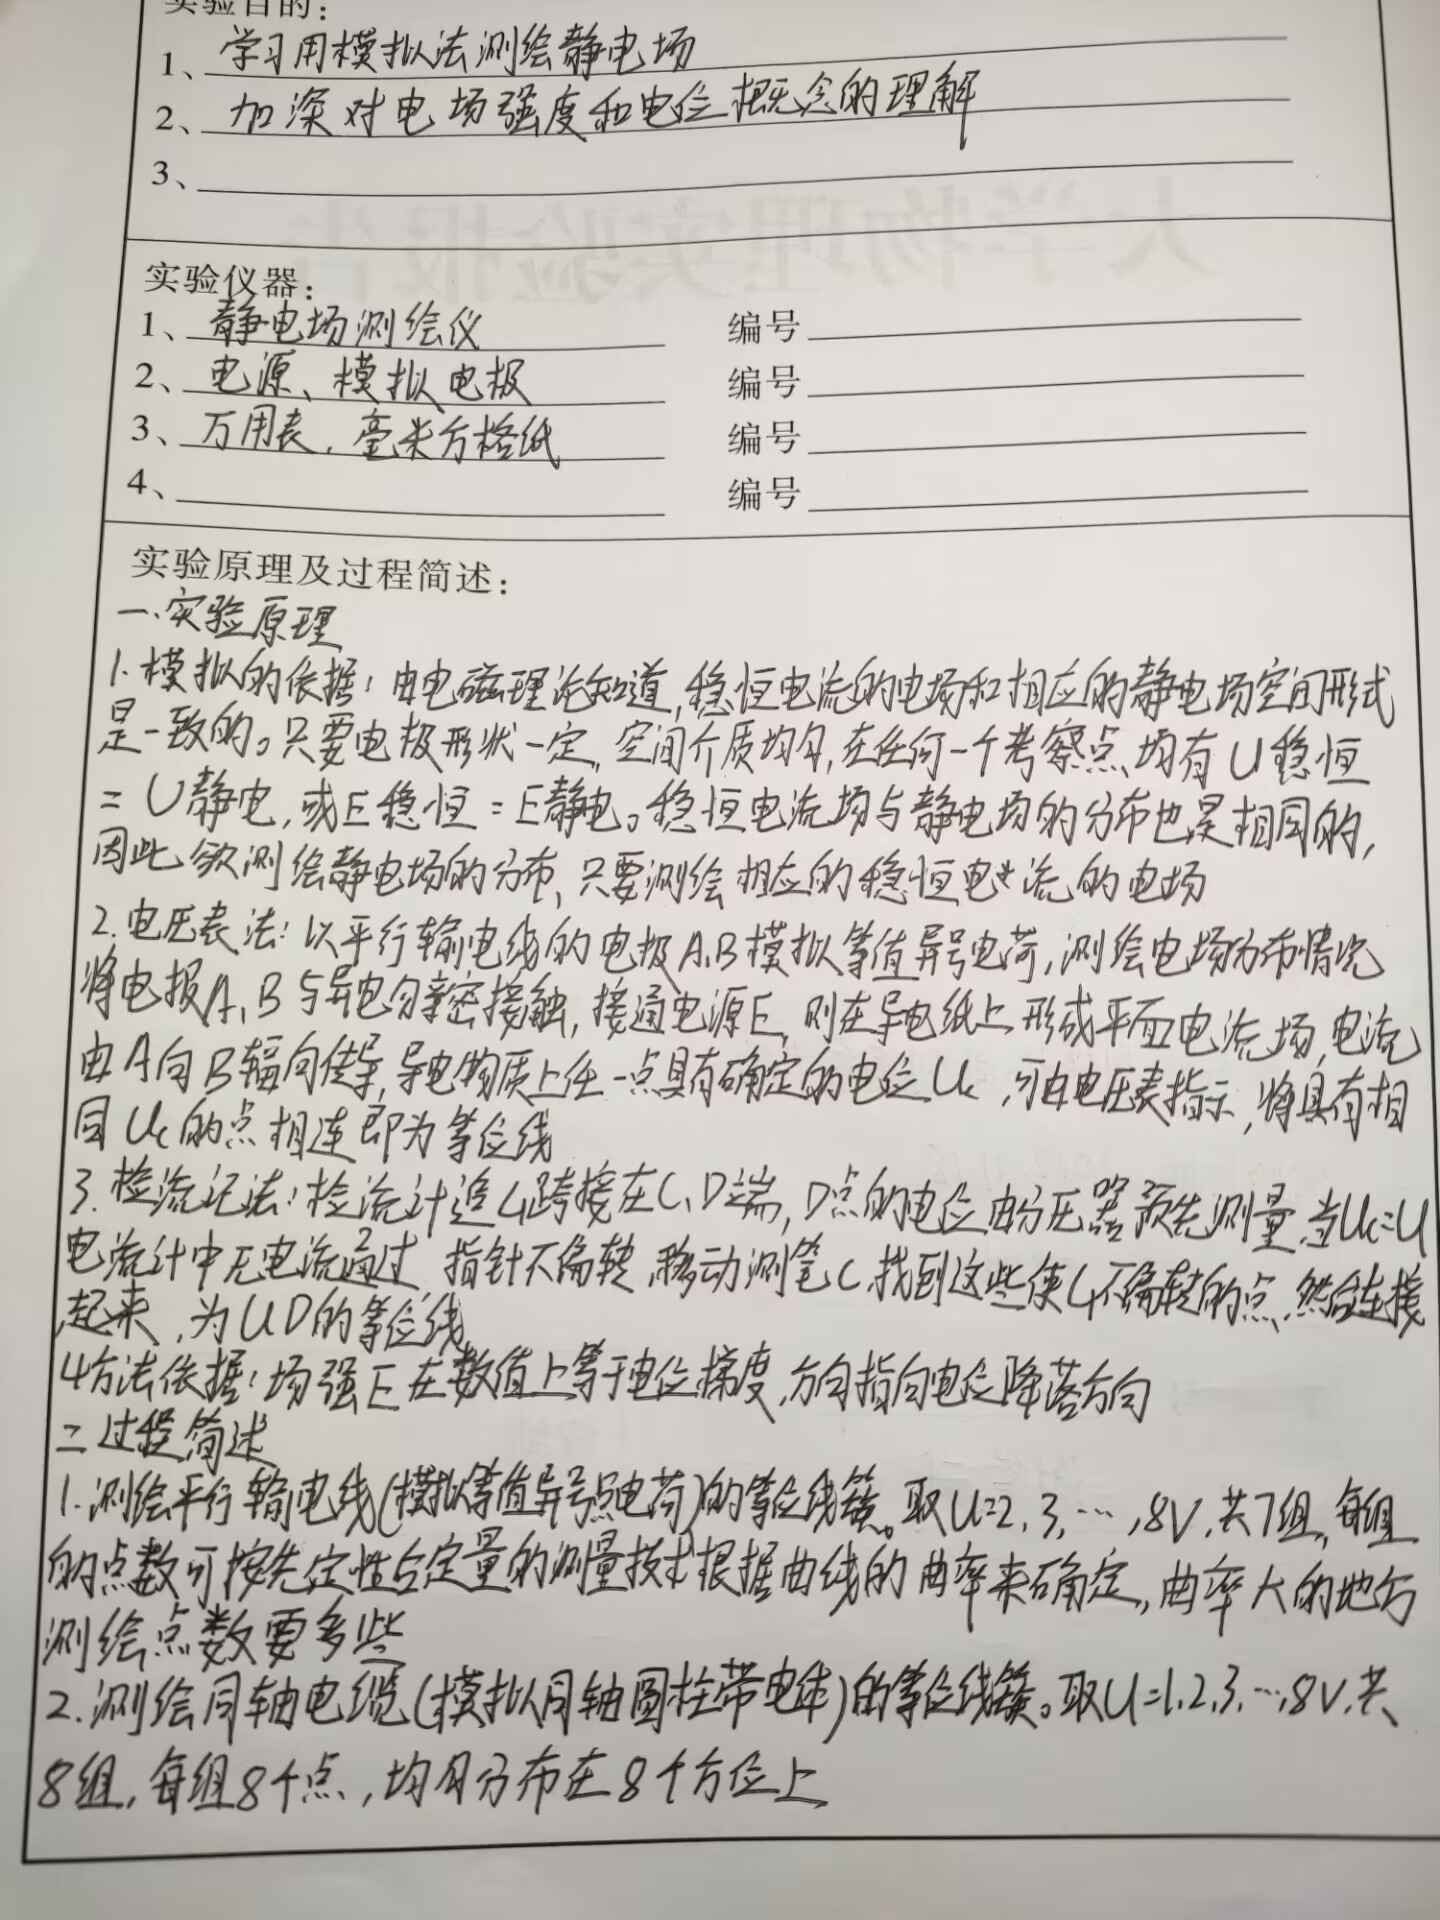 实验目的：
1、学习用模拟法测绘静电场
2、加深对电场强度和电位概念的理解
3、
实验仪器：
1、静电场测绘仪 编号
2、电源、模拟电极 编号
3、万用表，毫米方格纸 编号
4、 编号
实验原理及过程简述：
一、实验原理
1.模拟的依据：由电磁理论知道，稳恒电流的电场和相应的静电场空间形式
是一致的。只要电极形状一定，空间介质均匀，在任何一个考察点，均有U稳恒
=U静电，或E稳恒=E静电。稳恒电流场与静电场的分布也是相同的，
因此，欲测绘静电场的分布，只要测绘相应的稳恒电流的电场
2.电压表法：以平行输电线的电极A、B模拟等值异号电荷，测绘电场分布情况
将电报A、B与导电匀亲密接触，接通电源E，则在导电纸上形成平面电流场，电流
由A向B辐向传导，导电物质上任一点具有确定的电位Uc，可由电压表指示，将具有相
同Uc的点相连即为等位线
3.检流记法：检流计G跨接在C、D端，D点的电位由分压器预先测量，当Uc=U
电流计中无电流通过，指针不偏转，移动测笔C，找到这些使G不偏转的点，然后连接
起来，为UD的等位线
4方法依据：场强E在数值上等于电位梯度，方向指向电位降落方向
二过程简述
1.测绘平行输电线(模拟等值异号点电荷)的等位线簇。取U=2，3，…，8V，共7组，每组
的点数可按先定性与定量的测量技术根据曲线的曲率来确定，曲率大的地方
测绘点数要多些
2.测绘同轴电缆(模拟同轴圆柱带电体)的等位线簇。取U=1，2，3，…，8V，共
8组，每组8个点，均匀分布在8个方位上